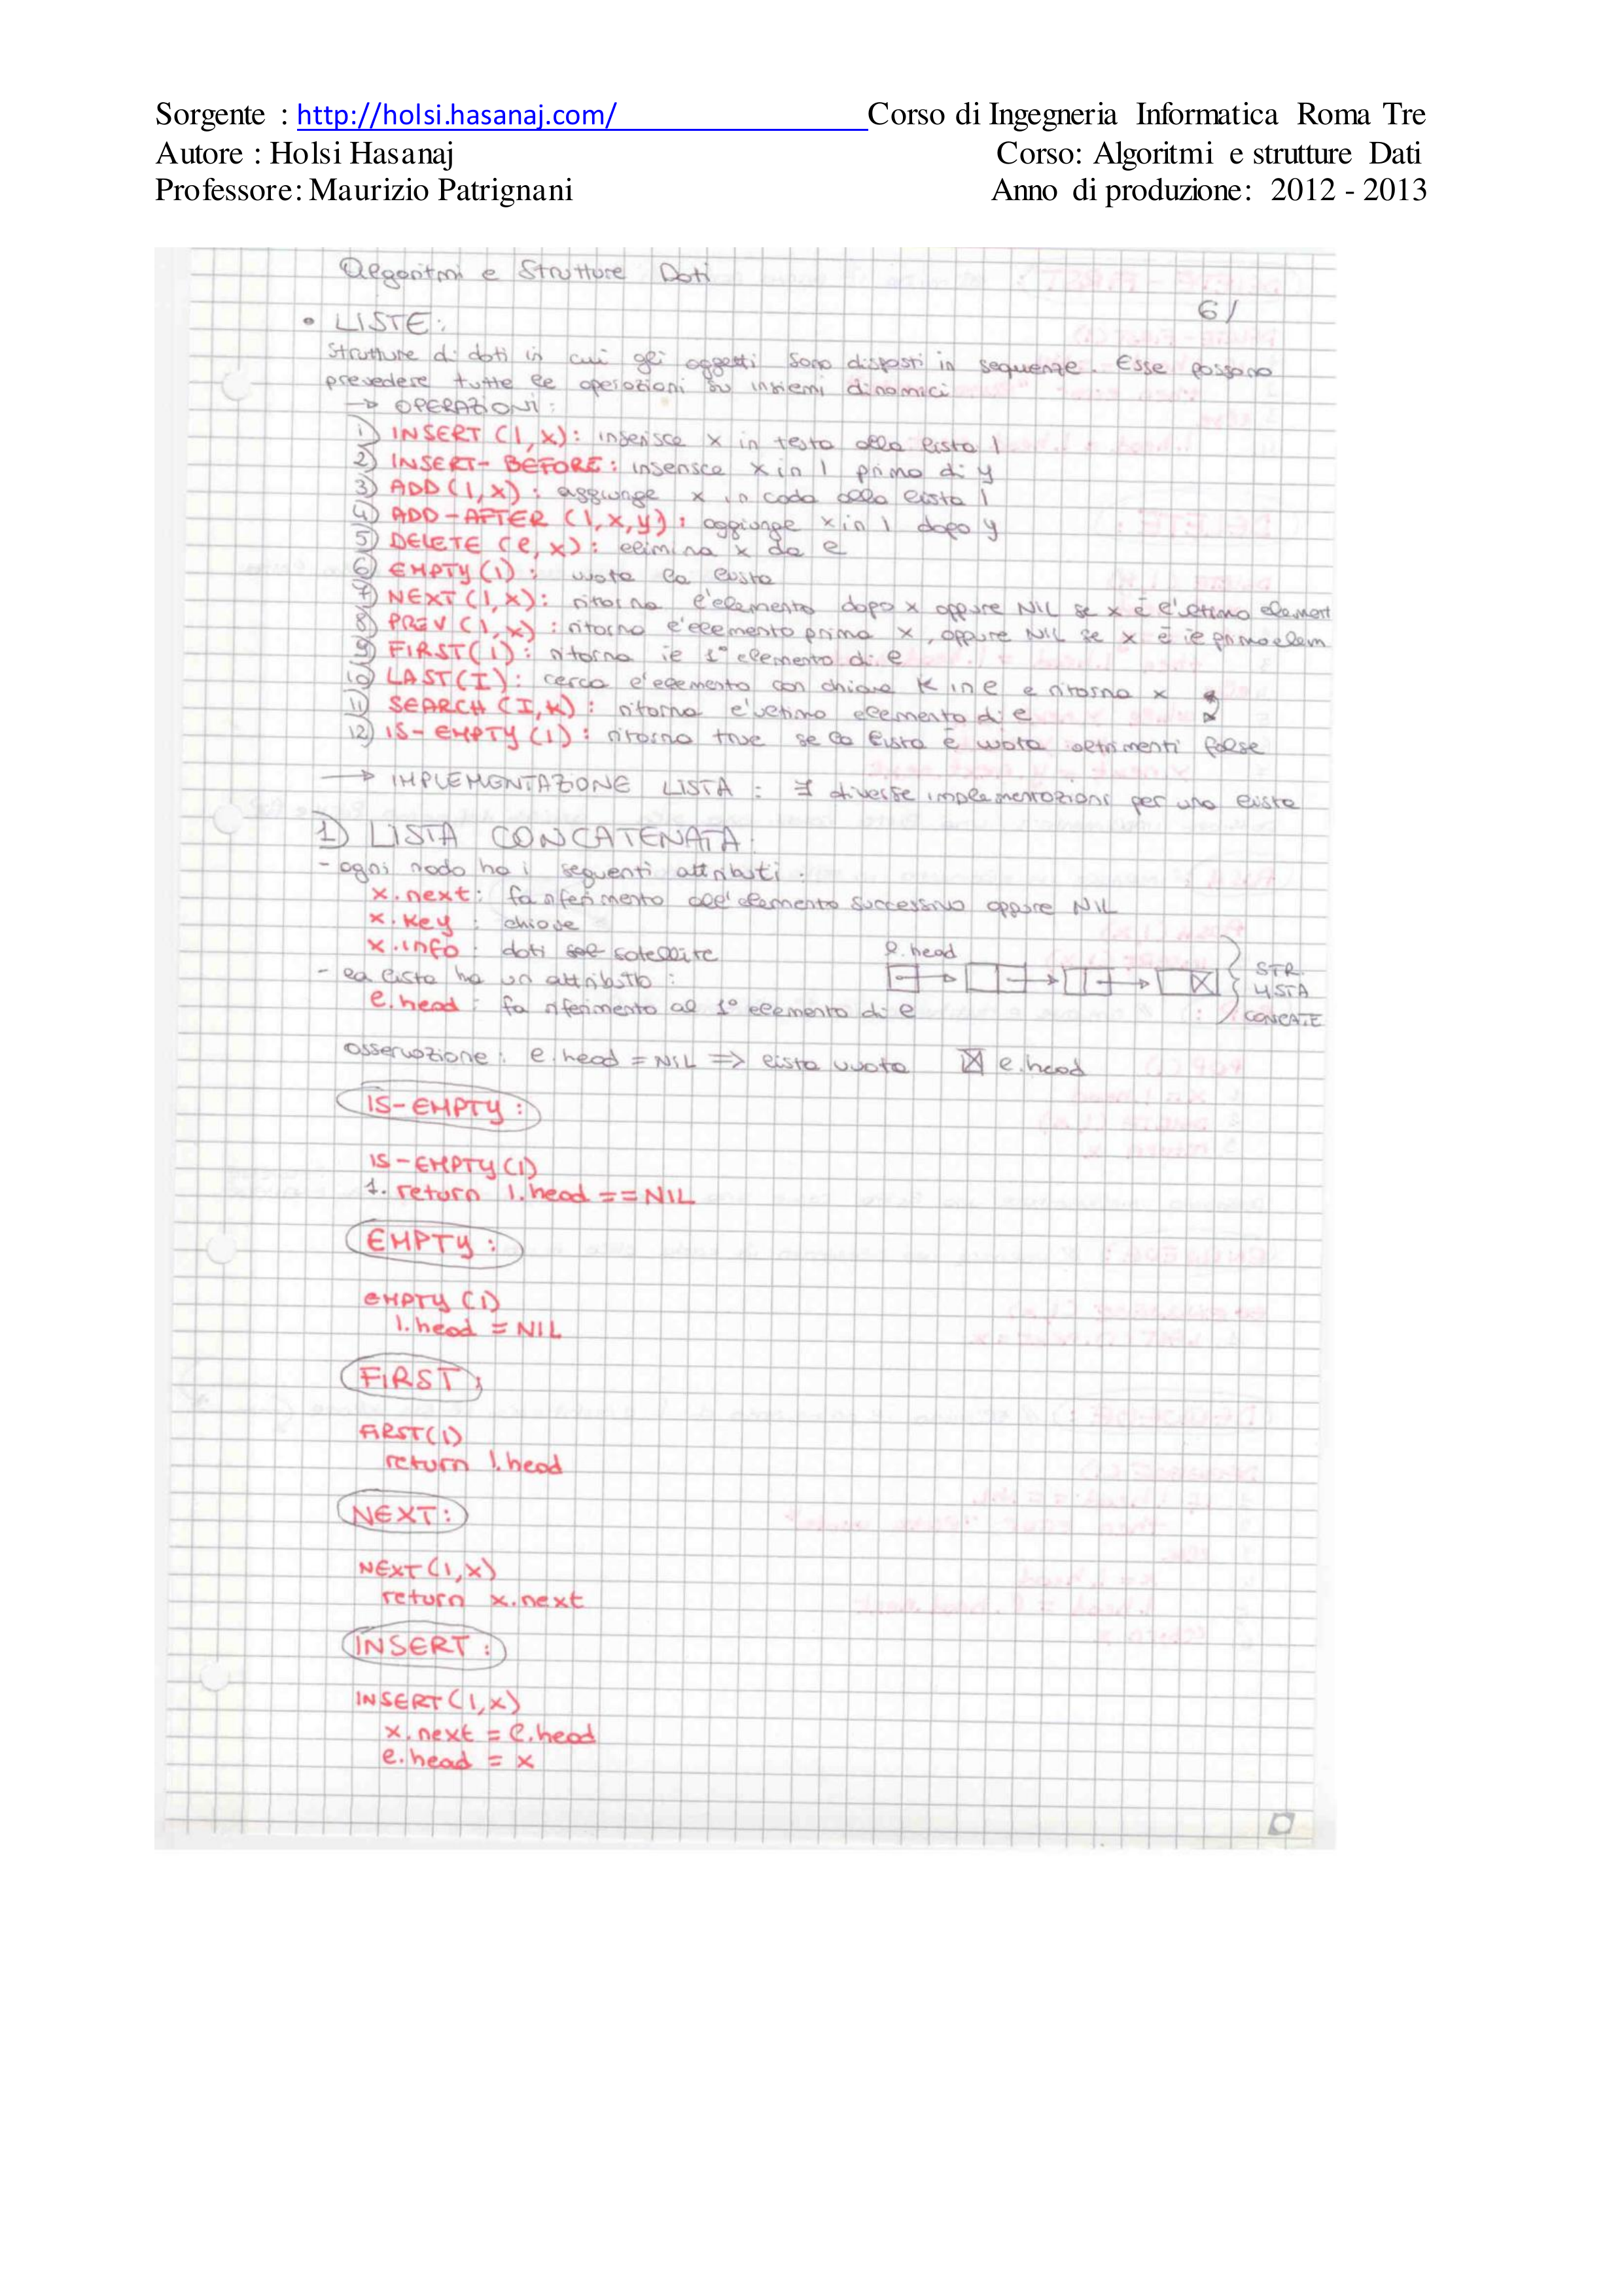 Sorgente : http://holsi.hasanaj.com/ Corso di Ingegneria Informatica Roma Tre
Autore : Holsi Hasanaj Corso: Algoritmi e strutture Dati
Professore: Maurizio Patrignani Anno di produzione: 2012 - 2013
Algoritmi e Strutture Dati
6/
• LISTE:
Strutture di dati in cui gli oggetti sono disposti in sequenze. Esse possono
prevedere tutte le operazioni su insiemi dinamici
→ OPERAZIONI:
1) INSERT (l,x): inserisce x in testa alla lista l
2) INSERT- BEFORE: inserisce x in l prima di y
3) ADD (l,x): aggiunge x in coda alla lista l
4) ADD-AFTER (l,x,y): aggiunge x in l dopo y
5) DELETE (l,x): elimina x da l
6) EMPTY(l): vuota la lista
7) NEXT(l,x): ritorna l'elemento dopo x oppure NIL se x è l'ultimo element
8) PREV(l,x): ritorna l'elemento prima x, oppure NIL se x è il primo elem
9) FIRST(l): ritorna il 1° elemento di l
10) LAST(I): cerca l'elemento con chiave K in l e ritorna x
11) SEARCH (I,K): ritorna l'ultimo elemento di l
12) IS-EMPTY(l): ritorna true se la lista è vuota altrimenti false
→ IMPLEMENTAZIONE LISTA: ∃ diverse implementazioni per una lista
1) LISTA CONCATENATA:
- ogni nodo ha i seguenti attributi:
x.next: fa riferimento all'elemento successivo oppure NIL
x.key: chiave
x.info: dati satellite
- la lista ha un attributo:
l.head: fa riferimento al 1° elemento di l
l.head
STR.
LISTA
CONCATE
osservazione: l.head = NIL => lista vuota ☒ l.head
IS-EMPTY:
IS-EMPTY(l)
1. return l.head == NIL
EMPTY:
EMPTY(l)
l.head = NIL
FIRST:
FIRST(l)
return l.head
NEXT:
NEXT(l,x)
return x.next
INSERT:
INSERT(l,x)
x.next = l.head
l.head = x